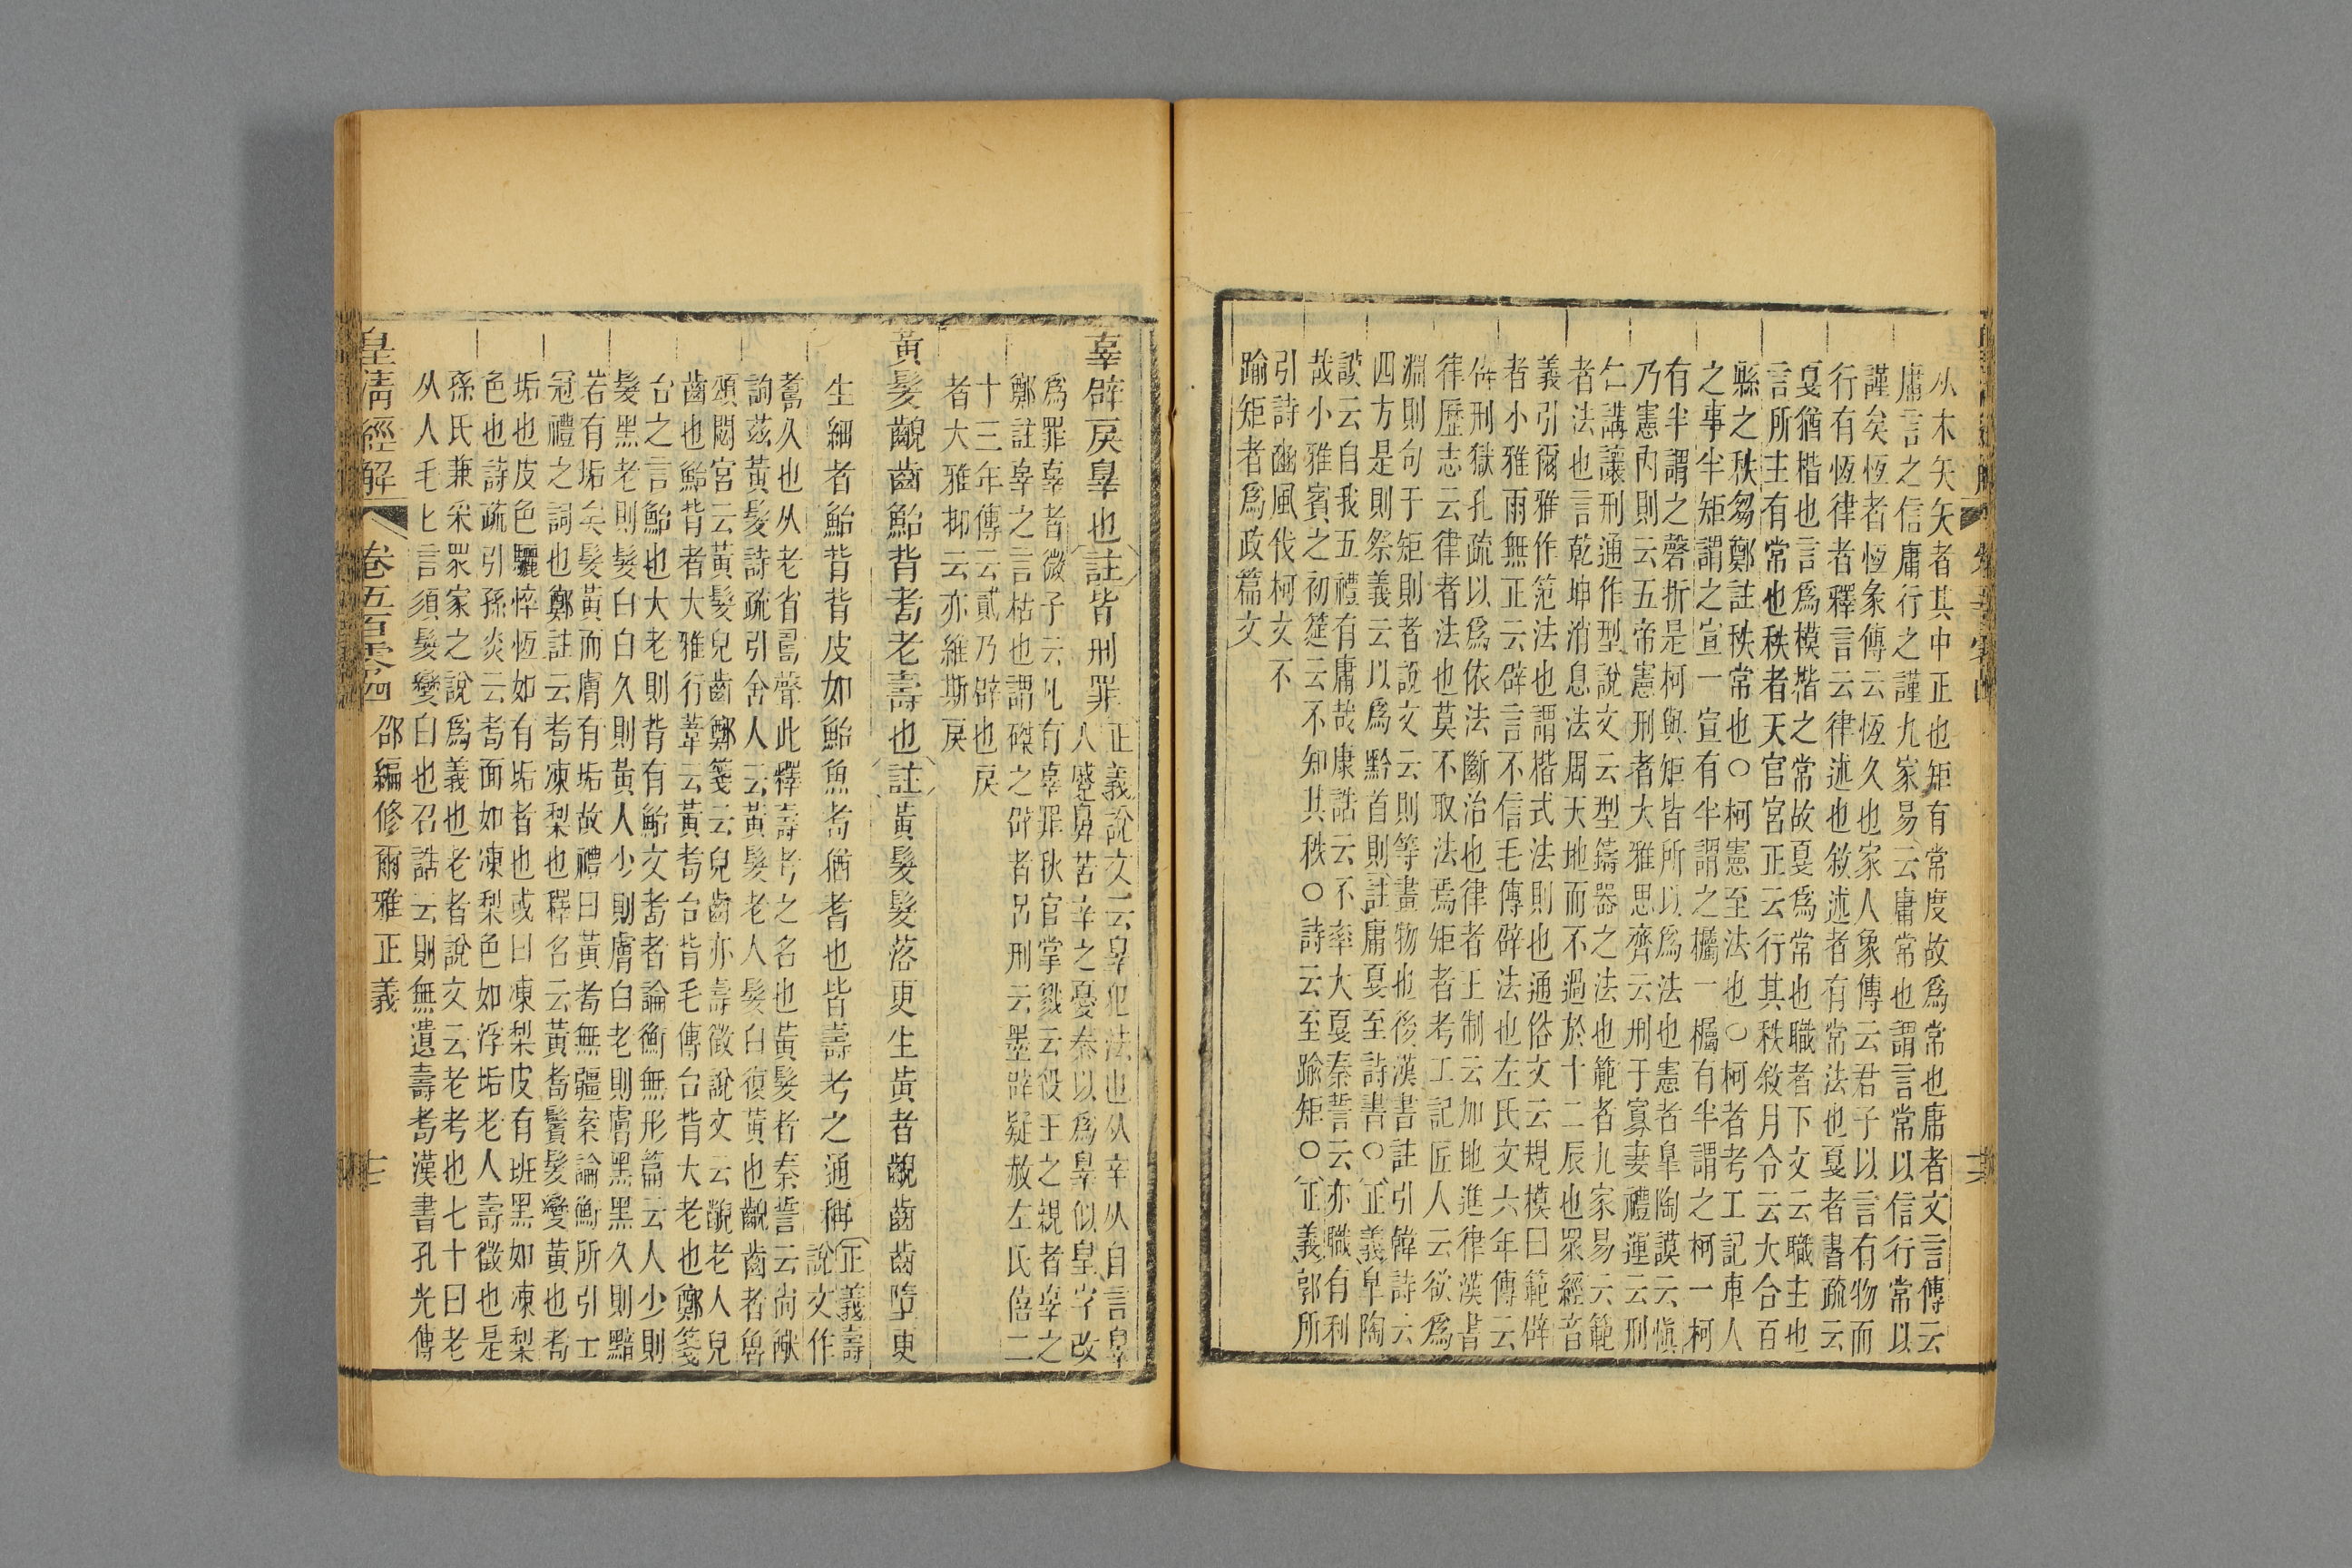 从木矢矢者其中正也矩有常度故爲常也庸者文言傳云
庸言之信庸行之謹九家易云庸常也謂言常以信行常以
謹矣恆者恆彖傳云恆久也家人象傳云君子以言有物而
行有恆律者釋言云律述也敘述者有常法也戛者書疏云
戛猶楷也言爲模楷之常故戛爲常也職者下文云職主也
言所主有常也秩者天官宮正云行其秩敘月令云大合百
縣之秩芻鄭註秩常也○柯憲至法也○柯者考工記車人
之事半矩謂之宣一宣有半謂之欘一欘有半謂之柯一柯
有半謂之磬折是柯與矩皆所以爲法也憲者皐陶謨云愼
乃憲內則云五帝憲刑者大雅思齊云刑于寡妻禮運云刑
仁講讓刑通作型說文云型鑄器之法也範者九家易云範
者法也言乾坤消息法周天地而不過於十二辰也眾經音
義引爾雅作范法也謂楷式法則也通俗文云規模曰範辟
者小雅雨無正云辟言不信毛傳辟法也左氏文六年傳云
辟刑獄孔疏以爲依法斷治也律者王制云加地進律漢書
律歷志云律者法也莫不取法焉矩者考工記匠人云欲爲
淵則句于矩則者說文云則等畫物也後漢書註引韓詩云
四方是則祭義云以爲黔首則註庸戛至詩書○正義皐陶
謨云自我五禮有庸哉康誥云不率大戛秦誓云亦職有利
哉小雅賓之初筵云不知其秩○詩云至踰矩○正義郭所
引詩豳風伐柯文不
踰矩者爲政篇文
皇清經解
卷五百零四
邵編修爾雅正義
辜辟戾辠也註皆刑罪正義說文云辠犯法也从辛从自言辠
人蹙鼻苦辛之憂秦以爲辠似皇字改
爲罪辜者微子云凡有辜罪秋官掌戮云殺王之親者辜之
鄭註辜之言枯也謂磔之辟者呂刑云墨辟疑赦左氏僖二
十三年傳云貳乃辟也戾
者大雅抑云亦維斯戾
黃髮齯齒鮐背耇老壽也註黃髮髮落更生黃者齯齒齒墮更
生細者鮐背背皮如鮐魚耇猶耆也皆壽考之通稱正義壽
說文作
耇久也从老省𠷎聲此釋壽考之名也黃髮者秦誓云尚猷
詢茲黃髮詩疏引舍人云黃髮老人髮白復黃也齯齒者魯
頌閟宮云黃髮兒齒鄭箋云兒齒亦壽徵說文云齯老人兒
齒也鮐背者大雅行葦云黃耇台背毛傳台背大老也鄭箋
台之言鮐也大老則背有鮐文耇者論衡無形篇云人少則
髮黑老則髮白白久則黃人少則膚白老則膚黑黑久則黯
若有垢矣髮黃而膚有垢故禮曰黃耇無疆案論衡所引士
冠禮之詞也鄭註云耇凍梨也釋名云黃耇鬢髮變黃也耇
垢也皮色驪悴恆如有垢者也或曰凍梨皮有班黑如凍梨
色也詩疏引孫炎云耇面如凍梨色如浮垢老人壽徵也是
孫氏兼采眾家之說爲義也老者說文云老考也七十曰老
从人毛匕言須髮變白也召誥云則無遺壽耇漢書孔光傳